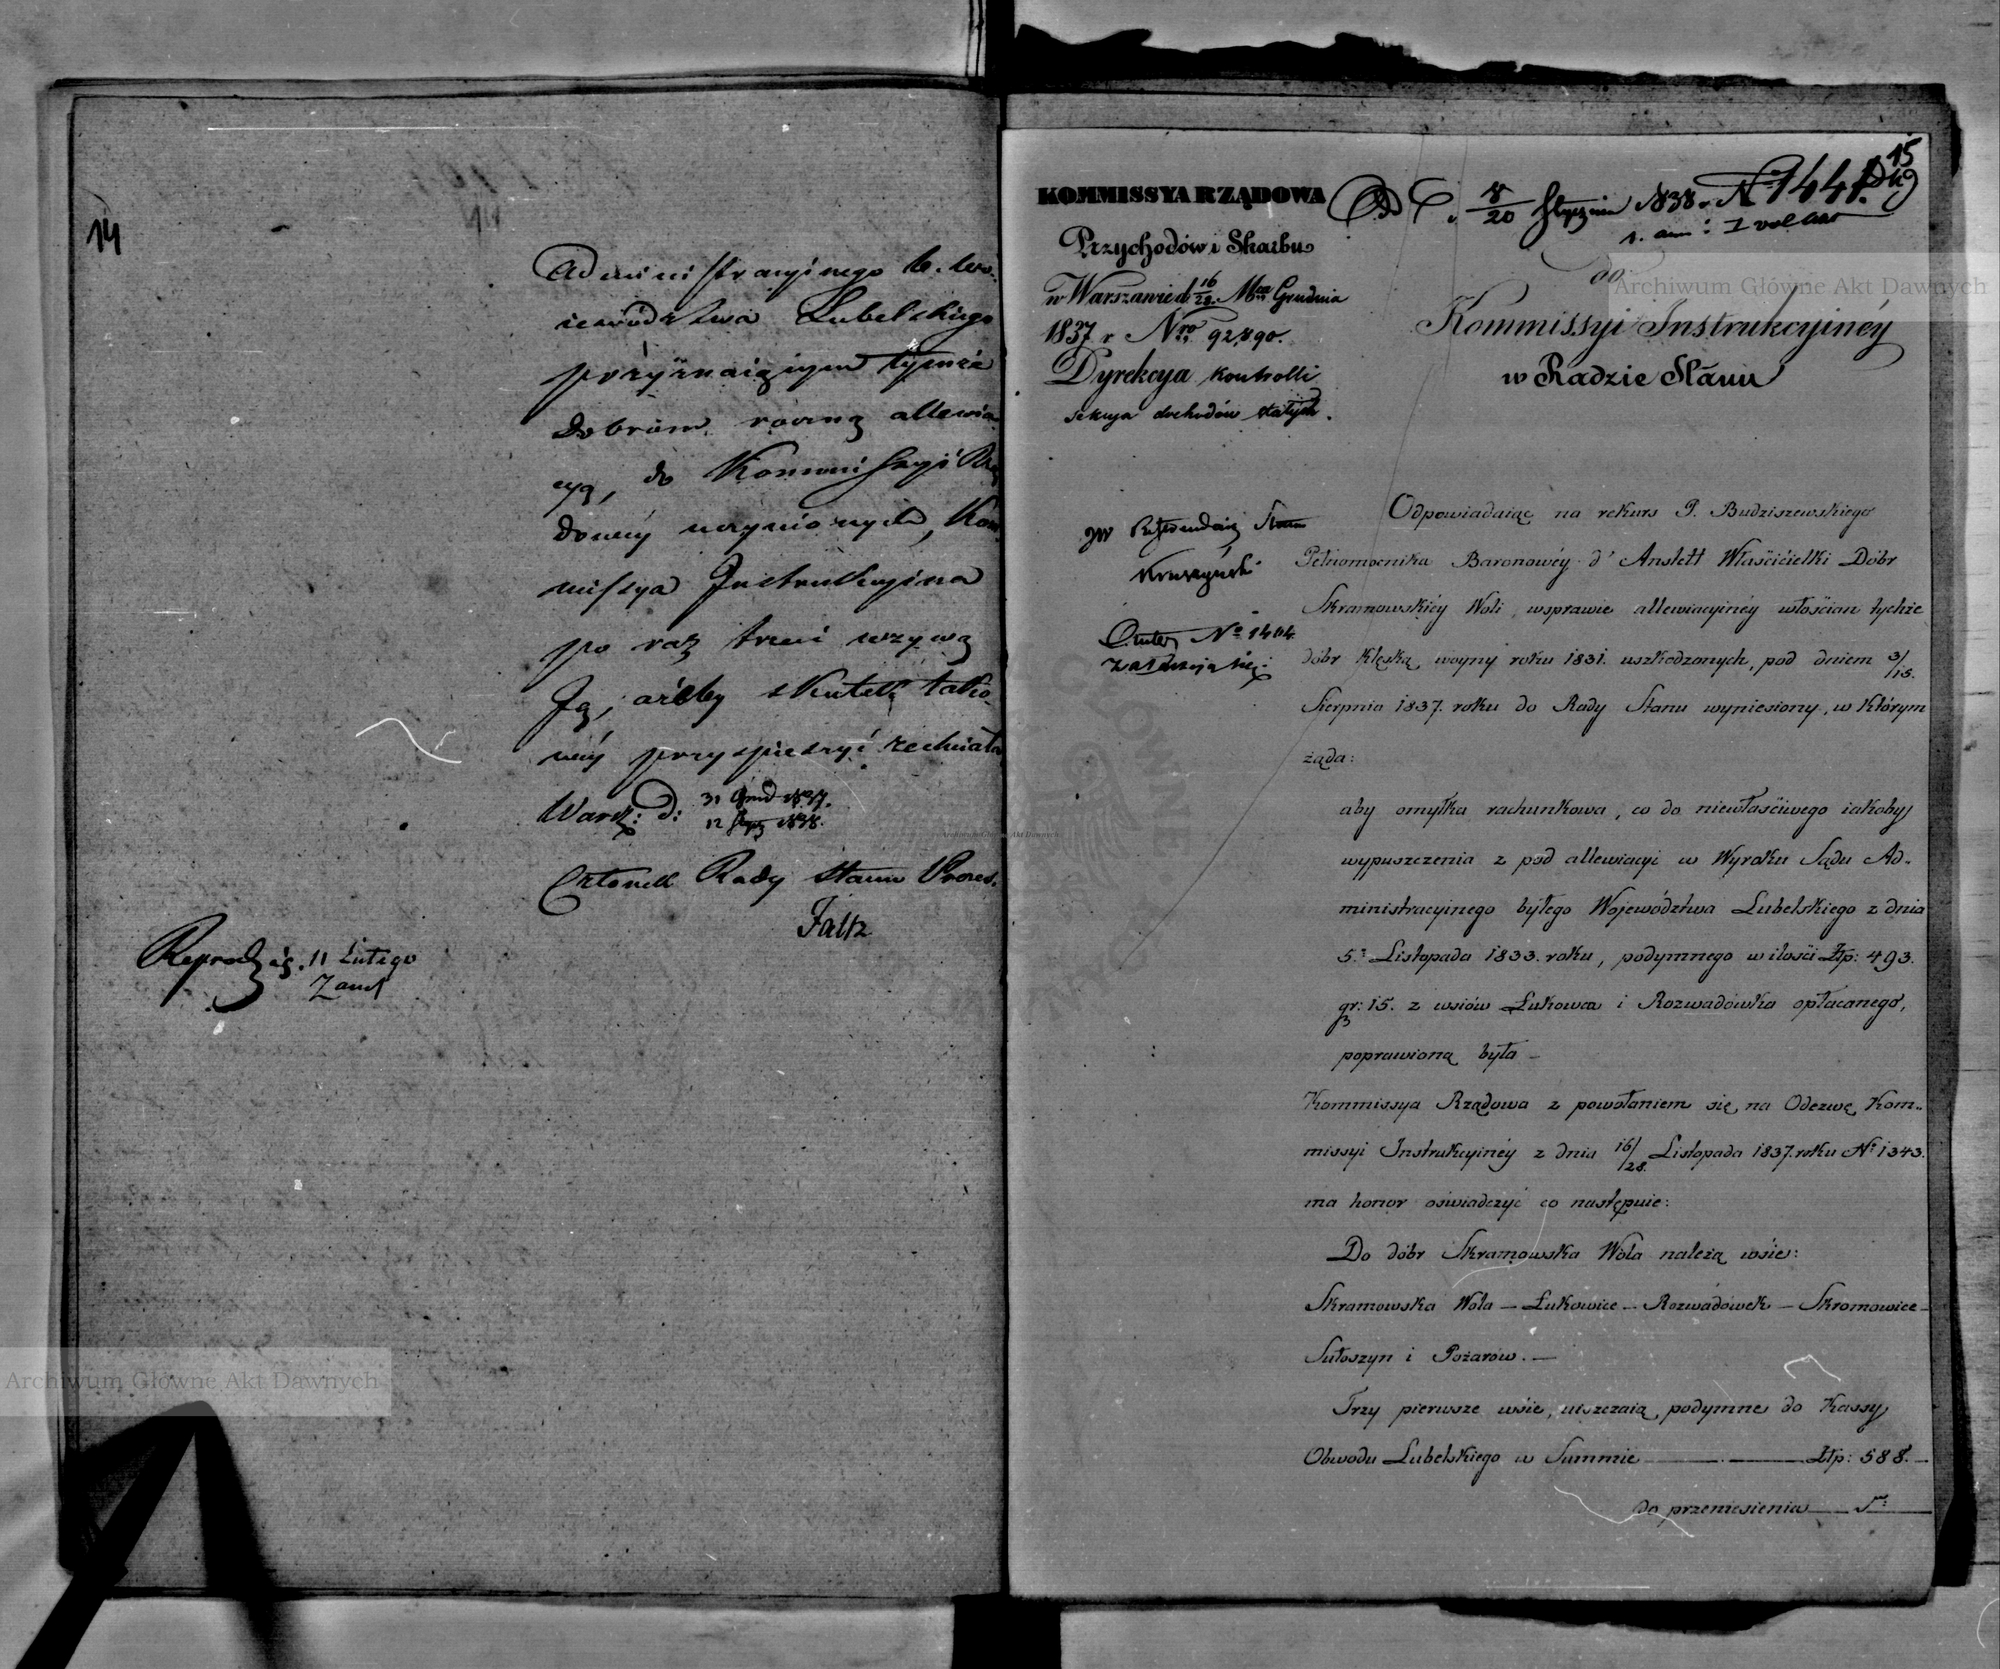 14
Administracyinego b. Wo-
iewództwa Lubelskiego
przyznaiącym tymże
dobrom rowną allewia
cyą, do Kommissyi Rzą
dowéy uczynionych, Kom
missya Instrukcyina
po raz trzeci wzywa
Ją, ażeby skutek tako
wéy przyspieszyć zechciała
Warsz: d: 31 Grud 1837.
12 Stycz 1838.
Członek Rady Stanu Prezes.
Faltz
11 Lutego
15
KOMMISSYA RZĄDOWA
Przychodów i Skarbu
w Warszawie d. 16/28. Mca Grudnia
1837 r Nro 92,890.
Dyrekcya Kontrolli
Sekcya dochodów stałych.
8/20 Stycznia 1838 r. No 1441.
do
Kommissyi Instrukcyinéy
w Radzie Stanu
JW Referendarz Stanu
Kruszyński
No 1404
załatwia się
Odpowiadaiąc na rekurs P. Budziszewskiego
Pełnomocnika Baronowéy d'Anstett Właścicielki Dóbr
Skramowskiéy Woli, wsprawie allewiacyinéy włościan tychże
dóbr klęską woyny roku 1831. uszkodzonych, pod dniem 3/15.
Sierpnia 1837. roku do Rady Stanu wyniesiony, w którym
żąda:
aby omyłka rachunkowa, co do niewłaściwego iakoby
wypuszczenia z pod allewiacyi w Wyroku Sądu Ad-
ministracyinego byłego Województwa Lubelskiego z dnia
5. Listopada 1833. roku, podymnego w ilości Złp: 493.
gr: 15. z wsiów Łukowca i Rozwadówka opłacanego,
poprawioną była –
Kommissya Rządowa z powołaniem się na Odezwę Kom-
missyi Instrukcyinéy z dnia 16/28 Listopada 1837. roku No 1343.
ma honor oświadczyć co następuie:
Do dóbr Skramowska Wola należą wsie:
Skramowska Wola – Łukowiec – Rozwadówek – Skromowice –
Sułoszyn i Pożarów. –
Trzy pierwsze wsie, uiszczaią podymne do Kassy
Obwodu Lubelskiego w Summie Złp: 588. –
do przeniesienia
Archiwum Główne Akt Dawnych
Archiwum Główne Akt Dawnych
Archiwum Główne Akt Dawnych